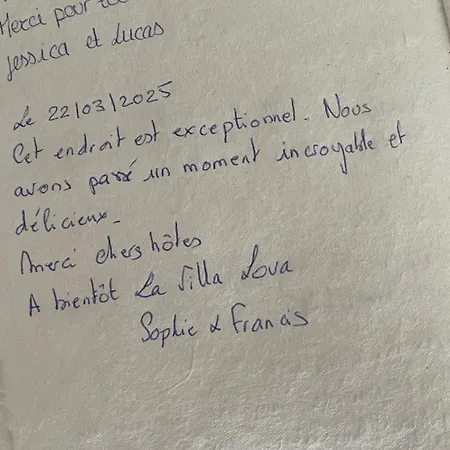 Merci pour
Jessica et Lucas
Le 22/03/2025
Cet endroit est exceptionnel. Nous
avons passé un moment incroyable et
délicieux.
Merci chers hôtes
A bientôt La Villa Lova
Sophie & Francis